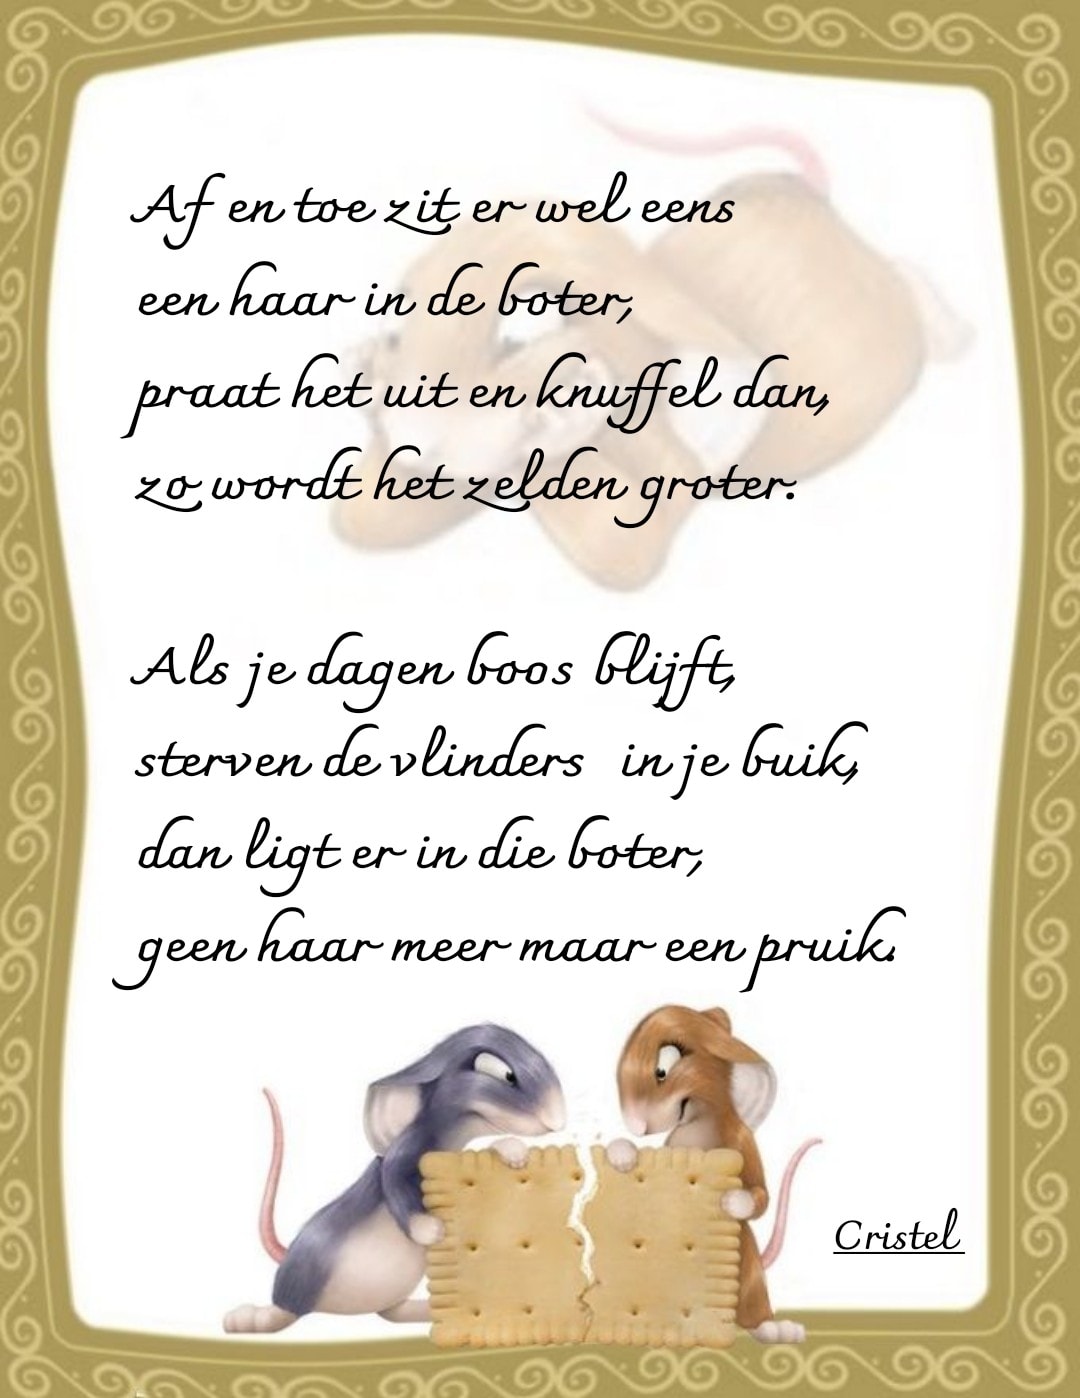 Af en toe zit er wel eens
een haar in de boter,
praat het uit en knuffel dan,
zo wordt het zelden groter.
Als je dagen boos blijft,
sterven de vlinders in je buik,
dan ligt er in die boter,
geen haar meer maar een pruik.
Cristel